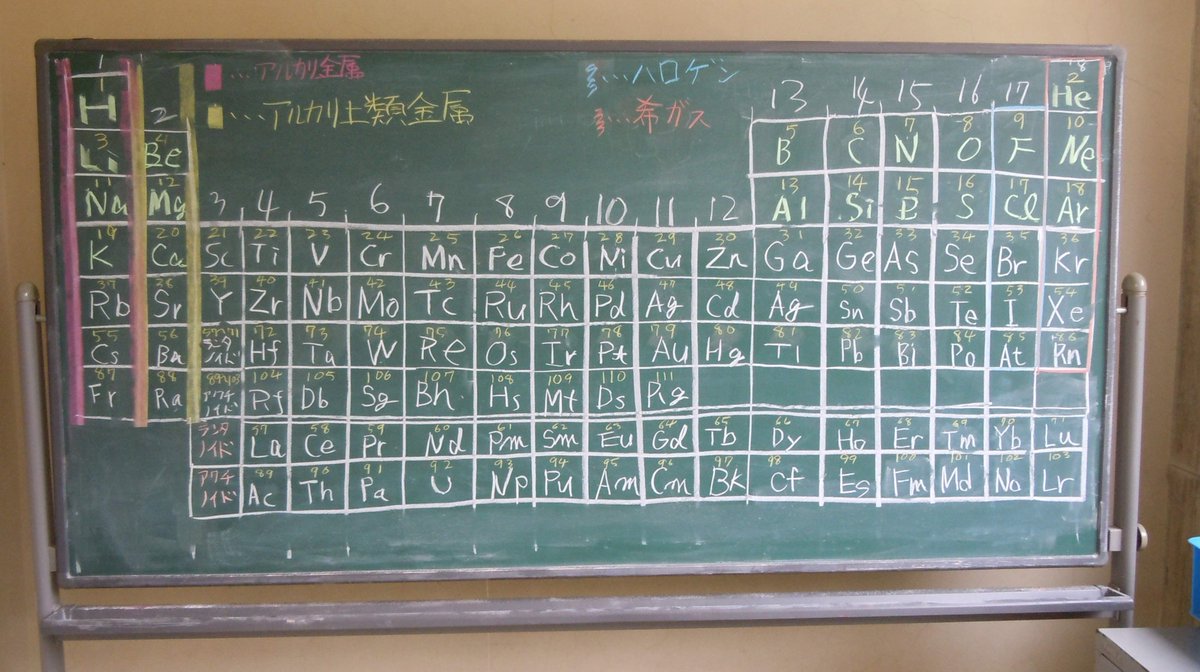 1 アルカリ金属 ハロゲン 18
H 2 アルカリ土類金属 希ガス 13 14 15 16 17 2 He
3 4 5 6 7 8 9 10
Li Be B C N O F Ne
11 12 13 14 15 16 17 18
Na Mg 3 4 5 6 7 8 9 10 11 12 Al Si P S Cl Ar
19 20 21 22 23 24 25 26 27 28 29 30 31 32 33 34 35 36
K Ca Sc Ti V Cr Mn Fe Co Ni Cu Zn Ga Ge As Se Br Kr
37 38 39 40 41 42 43 44 45 46 47 48 49 50 51 52 53 54
Rb Sr Y Zr Nb Mo Tc Ru Rh Pd Ag Cd Ag Sn Sb Te I Xe
55 56 57~71 72 73 74 75 76 77 78 79 80 81 82 83 84 85 86
Cs Ba ランタノイド Hf Ta W Re Os Ir Pt Au Hg Tl Pb Bi Po At Rn
87 88 89~103 104 105 106 107 108 109 110 111
Fr Ra アクチノイド Rf Db Sg Bh Hs Mt Ds Rg
57 58 59 60 61 62 63 64 65 66 67 68 69 70 71
ランタノイド La Ce Pr Nd Pm Sm Eu Gd Tb Dy Ho Er Tm Yb Lu
89 90 91 92 93 94 95 96 97 98 99 100 101 102 103
アクチノイド Ac Th Pa U Np Pu Am Cm Bk Cf Es Fm Md No Lr